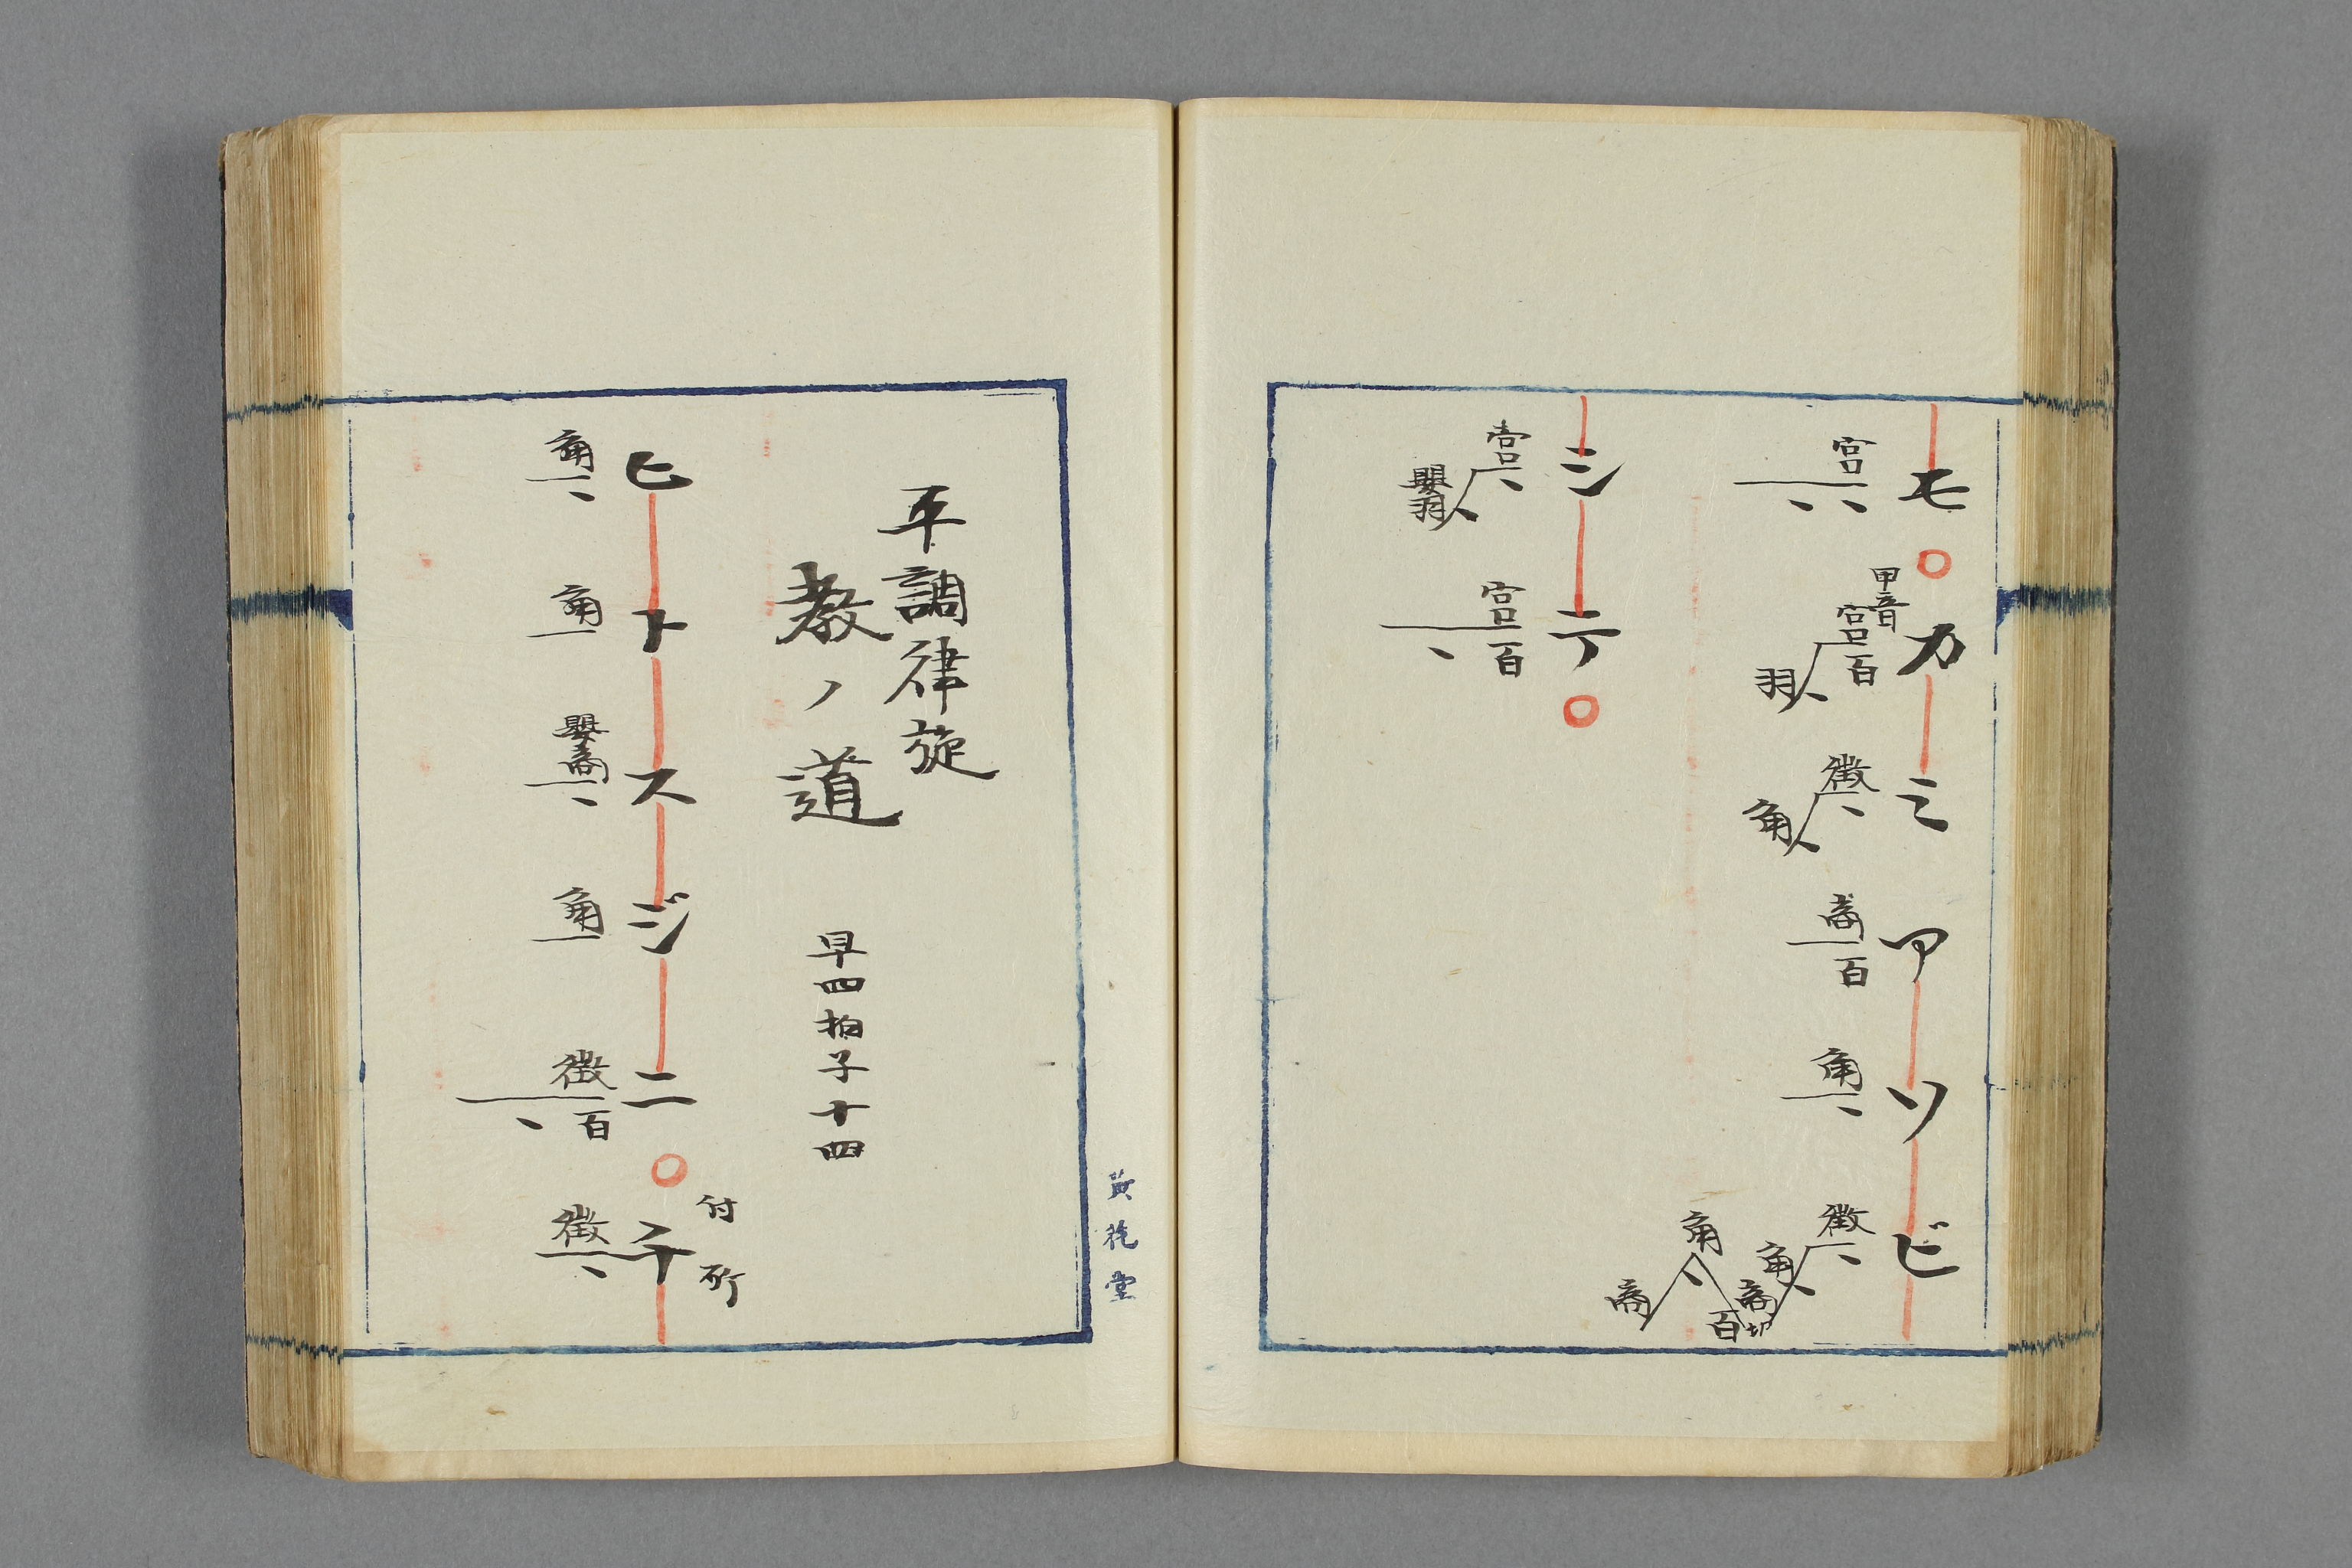 モ カミ アソビ
宮
甲音
宮 百
羽
徴
角
商 百
角
徴
角
商
百
角
商
シテ
宮
嬰羽
宮 百
平調律旋
教ノ道 早四拍子十四
ヒトスジニ テ
付所
角
角
嬰商
角
徴 百
徴